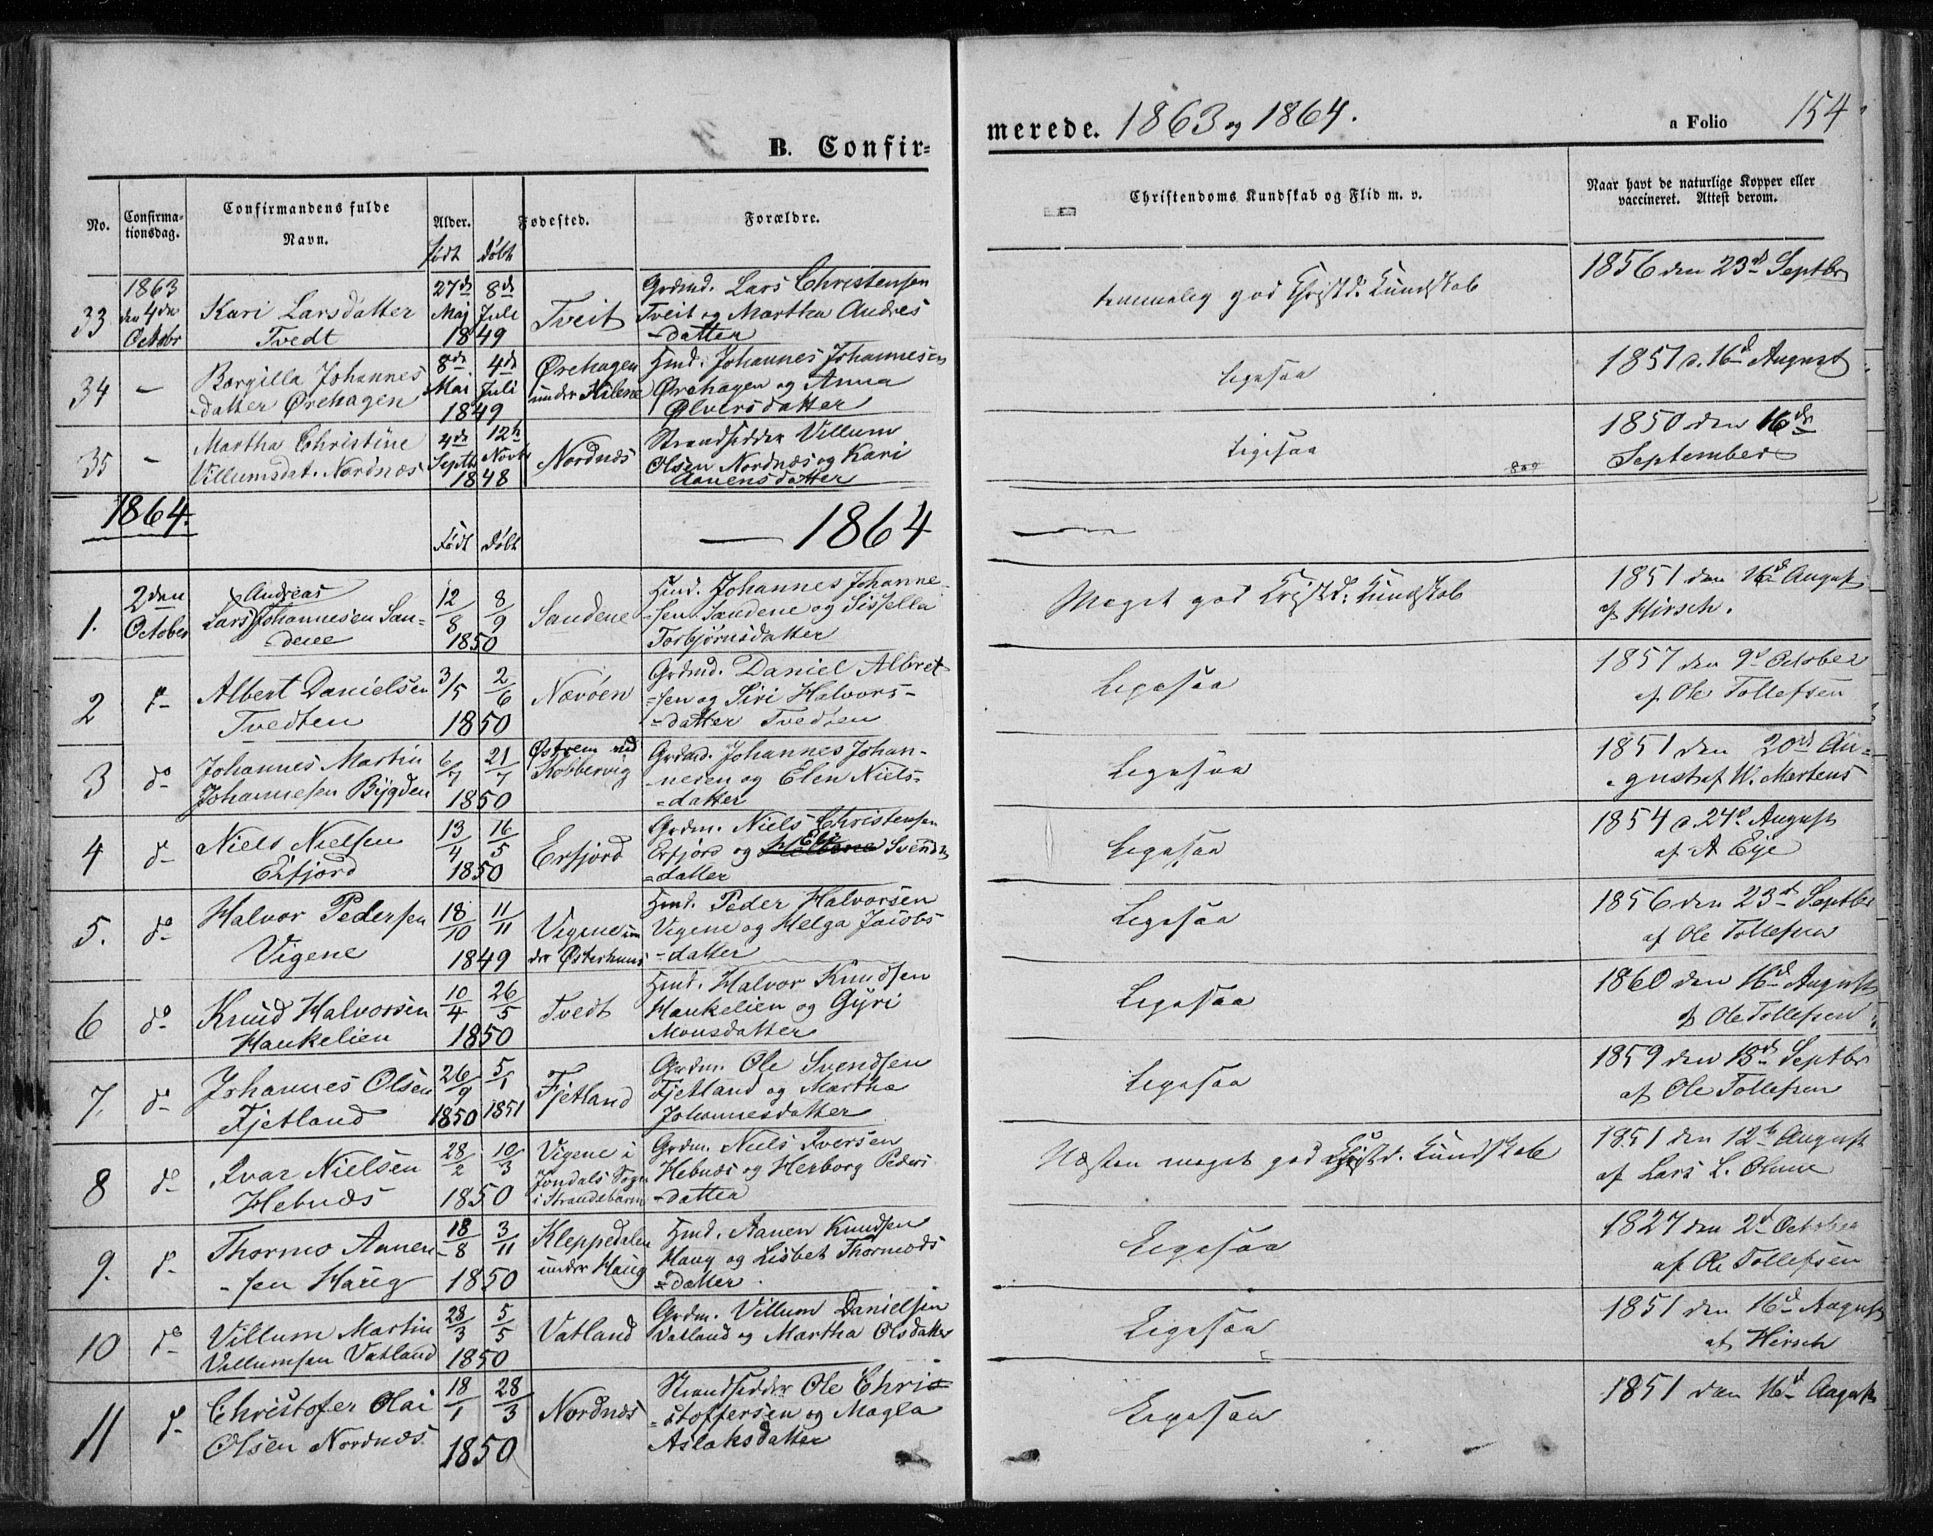 B. Confir=
merede. 1863 og 1864.
a Folio 154
No.
Confirma-
tionsdag.
Confirmandens fulde
Navn.
Alder.
Født
Døbt
Fødested.
Forældre.
Christendoms Kundskab og Flid m. v.
Naar havt de naturlige Kopper eller
vaccineret. Attest derom.
33
1863
den 4de
Octobr
Kari Larsdatter
Tvedt
27de
Maj
8de
Juli
1849
Tveit
Grdmd. Lars Christensen
Tveit og Martha Andres
-datter
temmelig god Christd. Kundskab
1856 den 23d Septbr
34
—
Borgilla Johannes
-datter Ørehagen
8de
Mai
4de
Juli
1849
Ørehagen
under Hilene
Hmd. Johannes Johannesen
Ørehagen og Anna
Ølversdatter
Ligesaa
1851 d. 16d August
35
—
Martha Christine
Villumsdat. Nordnæs
4de
Septb
12te
Novb
1848
Nordnæs
Strandsidder Villum
Olsen Nordnæs og Kari
Aanensdatter
Ligesaa
1850 den 16de
September
1864.
Født
Døbt
— 1864
1.
2den
October
Andreas
Lars Johannesen San-
dene
12/8
8/9
1850
Sandene
Hmd. Johannes Johanne-
-sen Sandene og Sissella
Torbjørnsdatter
Meget god Cristd. Kundskab
1851 den 16d August
af Hirsch.
2
do
Albert Danielsen
Tvedten
3/5
2/6
1850
Nærøen
Grdmd. Daniel Albret
=sen og Siri Halvors-
-datter Tvedten
Ligesaa
1857 den 9d October
af Ole Tollefsen
3
do
Johannes Martin
Johannesen Bygden
6/7
21/7
1850
Østrem ved
Kobbervig
Grdmd. Johannes Johan-
-nesen og Elen Niels-
=datter
Ligesaa
1851 den 20de Au-
-gust af W. Mertens
4
do
Niels Nielsen
Erfjord
13/4
16/5
1850
Erfjord
Grdm. Niels Christensen
Erfjord og Eli Svends
=datter
Ligesaa
1854 d. 24d August
af A Eye
5.
do
Halvor Pedersen
Vigene
18/10
11/11
1849
Vigene un
der Østerhuus
Hmd. Peder Halvorsen
Vigene og Helga Jacobs
-datter
Ligesaa
1856 den 23d Septbr
af Ole Tollefsen
6
do
Knud Halvorsen
Haukelien
10/4
26/5
1850
Tvedt
Hmd. Halvor Knudsen
Haukelien og Gyri
Monsdatter
Ligesaa
1860 den 16d August
af Ole Tollefsen
7.
do
Johannes Olsen
Fjetland
26/9
5/1
1850 1851
Fjetland
Grdm. Ole Svendsen
Fjetland og Martha
Johannesdatter
Ligesaa
1859 den 18de Septbr
af Ole Tollefsen
8
do
Ivar Nielsen
Hebnæs
28/2
10/3
1850
Vigene i
Jondals Sogn
i Strandebarm
Grdm. Niels Iversen
Hebnæs og Herborg Peders
-datter
Næsten meget god Christd. Kundskab
1851 den 12te August
af Lars L. Olmue
9.
do
Thormo Aanen
-sen Haug
18/8
3/11
1850
Kleppedalen
under Haug
Hmd. Aanen Knudsen
Haug og Lisbet Thormods
=datter.
Ligesaa
1827 den 2d October
af Ole Tollefsen
10
do
Villum Martin
Villumsen Vatland
28/3
5/5
1850
Vatland
Grdm. Villum Danielsen
Vatland og Martha Olsdatter
Ligesaa
1851 den 16d August
af Hirsch
11
do
Christofer Olai
Olsen Nordnæs
18/1
28/3
1850
Nordnæs
Strandsidder Ole Chri-
-stoffersen og Magla
Aslaksdatter
Ligesaa
1851 den 16d August